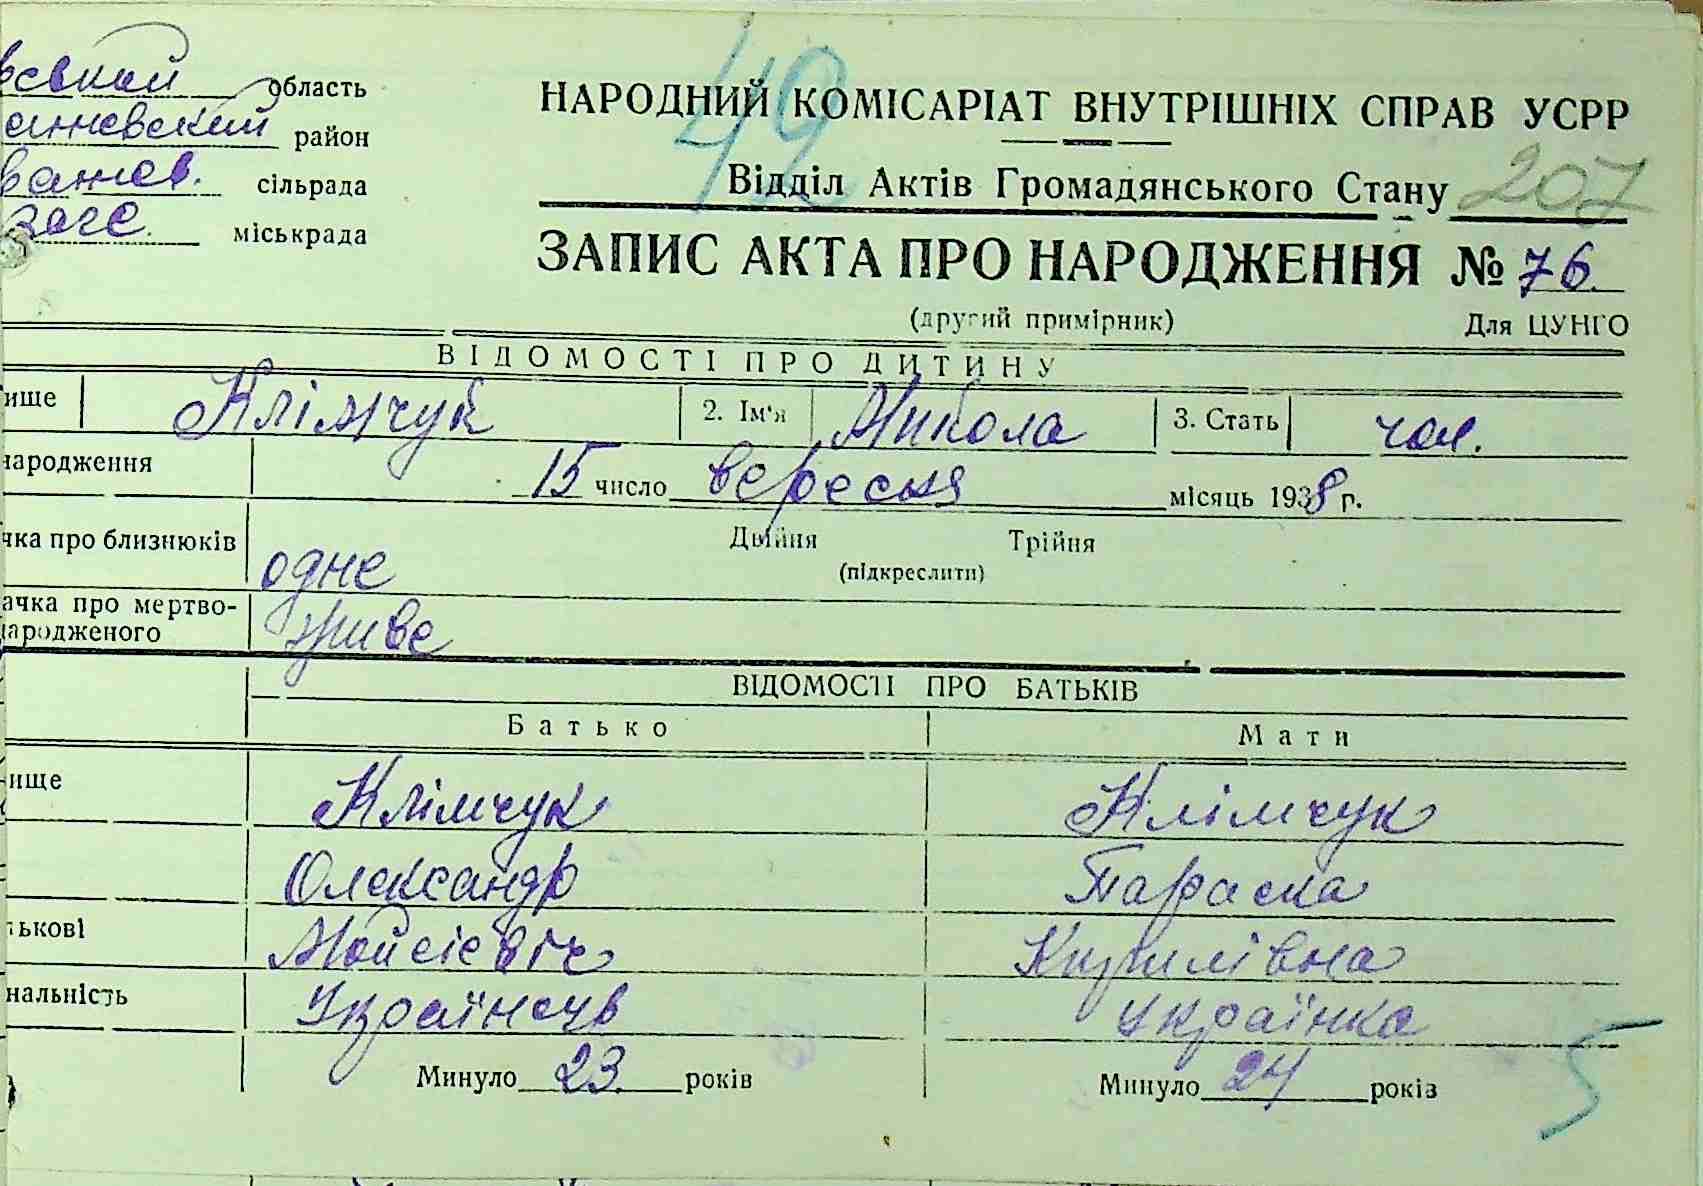 область
район
сільрада
міськрада
49
НАРОДНИЙ КОМІСАРІАТ ВНУТРІШНІХ СПРАВ УСРР
Відділ Актів Громадянського Стану 207
ЗАПИС АКТА ПРО НАРОДЖЕННЯ № 76.
(другий примірник) Для ЦУНГО
ВІДОМОСТІ ПРО ДИТИНУ
ище Клімчук 2. Ім'я Микола 3. Стать чол.
народження 15 число вересня місяць 1938 г.
чка про близнюків одне Двійня Трійня
(підкреслити)
ачка про мертво-
народженого живе
ВІДОМОСТІ ПРО БАТЬКІВ
Батько Мати
ище Клімчук Клімчук
Олександр Параска
тькові Мойсієвіч Кирилівна
нальність Українець Українка
Минуло 23. років Минуло 24 років
5